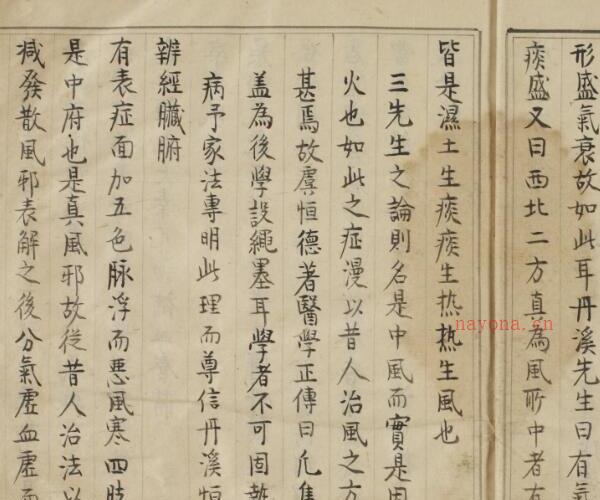 形盛氣衰故如此耳丹溪先生曰有氣
痰盛又曰西北二方真為風所中者
皆是濕土生痰痰生热热生風也
三先生之論則名是中風而實是因
火也如此之症漫以昔人治風之方
甚焉故虞恒德著醫學正傳曰凡集
盖為後學設繩墨耳學者不可固執
病予家法專明此理而尊信丹溪恒
辨經臟腑
有表症面加五色脉浮而惡風寒四肢
是中府也是真風邪故從昔人治法以
减發散風邪表解之後分氣虛血虛而
nayona.cn